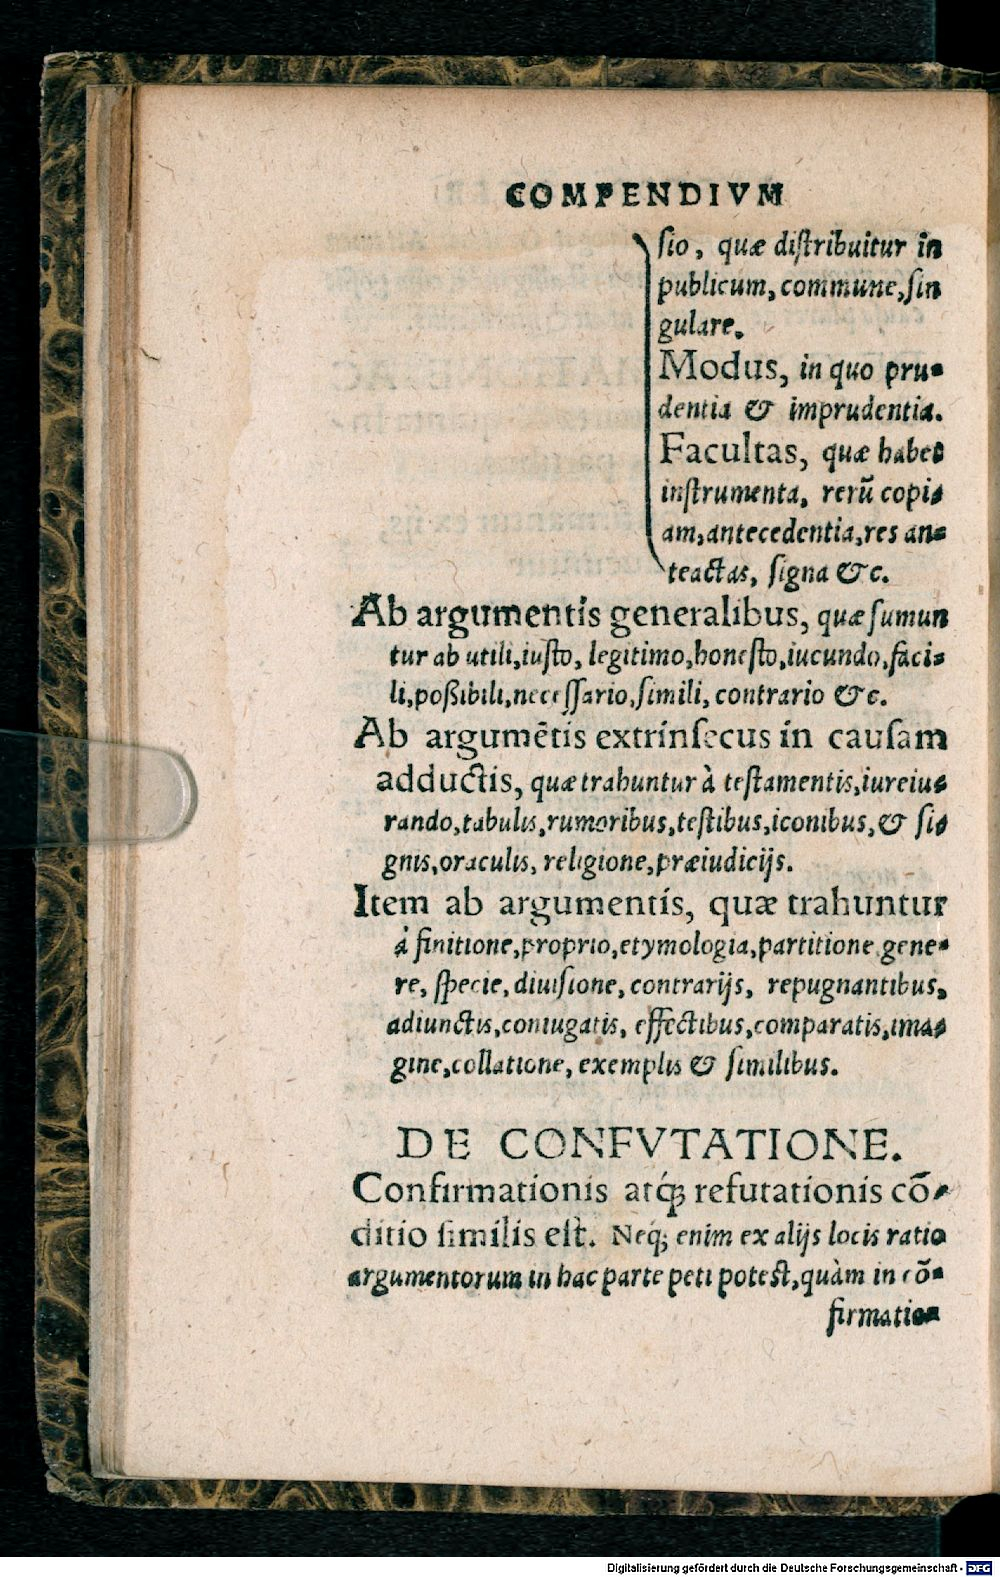 COMPENDIVM
sio, quæ distribuitur in
publicum, commune, sin
gulare.
Modus, in quo pru-
dentia & imprudentia.
Facultas, quæ habet
instrumenta, rerũ copi-
am, antecedentia, res an-
teactas, signa &c.
Ab argumentis generalibus, quæ sumun
tur ab utili, iusto, legitimo, honesto, iucundo, faci-
li, poßibili, necessario, simili, contrario &c.
Ab argumētis extrinsecus in causam
adductis, quæ trahuntur à testamentis, iureiu-
rando, tabulis, rumoribus, testibus, iconibus, & si-
gnis, oraculis, religione, præiudicijs.
Item ab argumentis, quæ trahuntur
à finitione, proprio, etymologia, partitione gene-
re, specie, diuisione, contrarijs, repugnantibus,
adiunctis, coniugatis, effectibus, comparatis, ima-
gine, collatione, exemplis & similibus.
DE CONFVTATIONE.
Confirmationis atq; refutationis cō-
ditio similis est. Neq; enim ex alijs locis ratio
argumentorum in hac parte peti potest, quàm in cō-
firmatio-
Digitalisierung gefördert durch die Deutsche Forschungsgemeinschaft - DFG